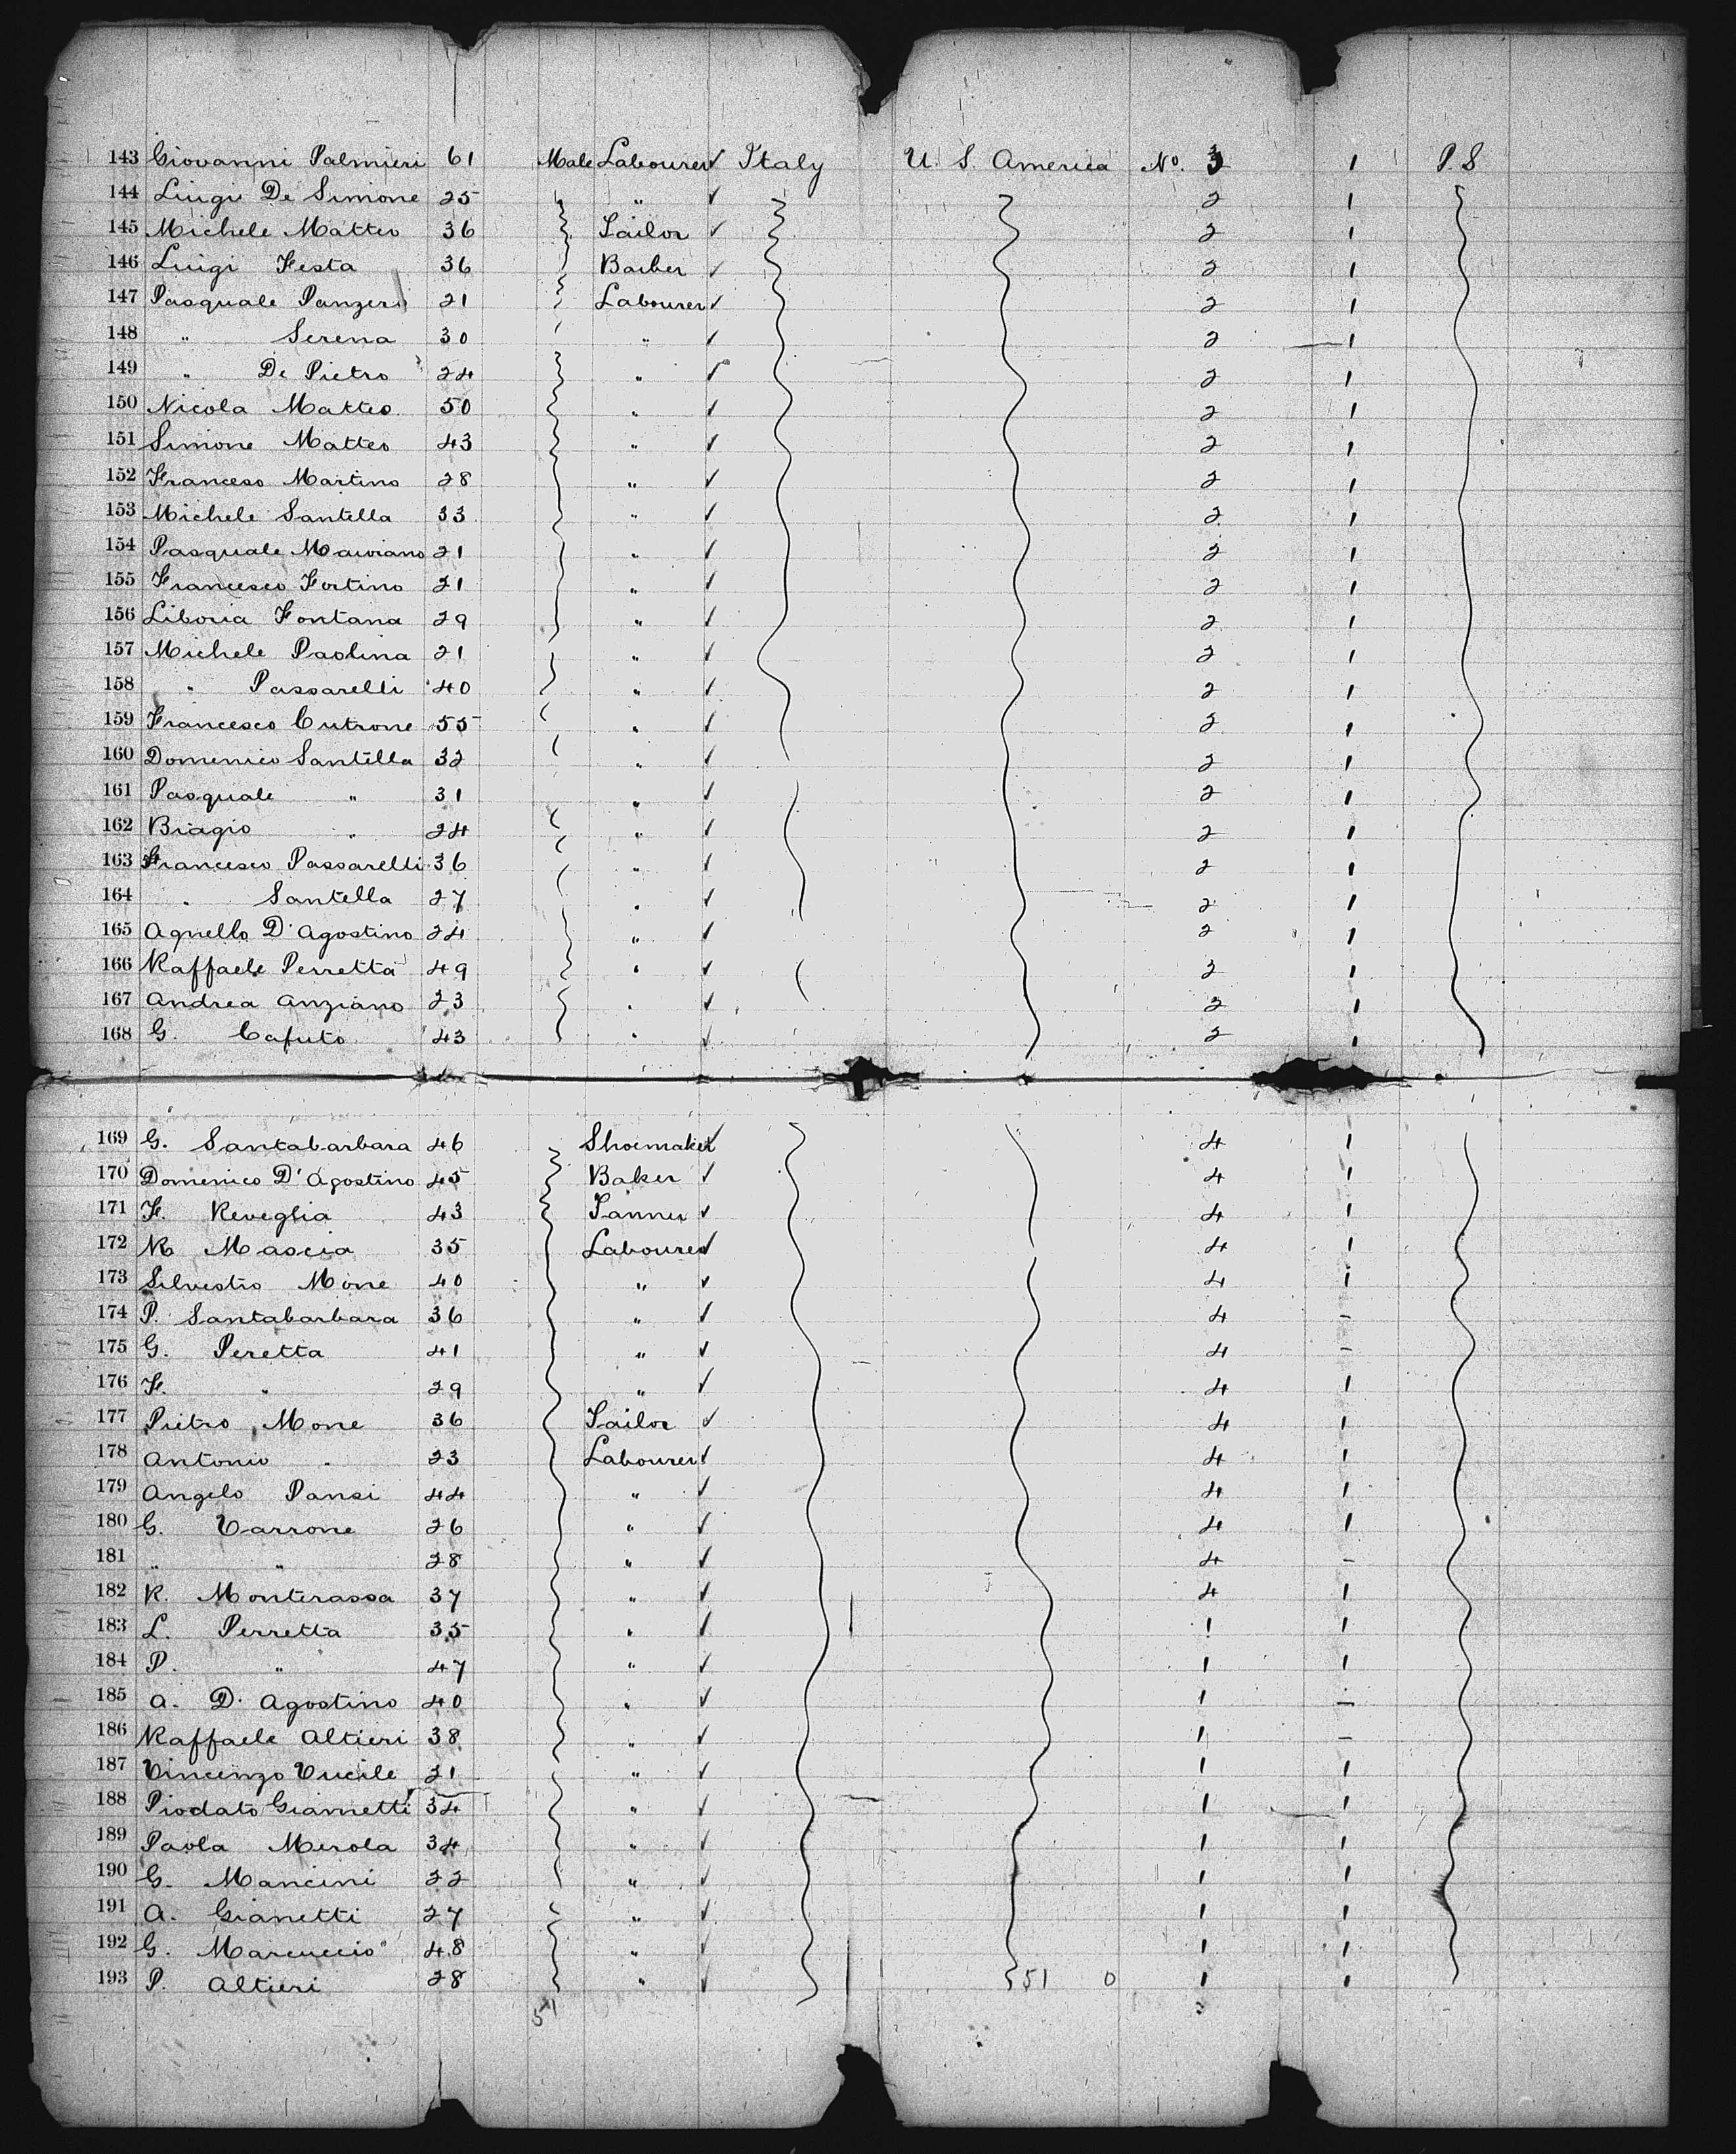 143 Giovanni Palmieri 61 Male Labourer ✓ Italy U. S. America No. 3 1 P.S
144 Luigi De Simone 25 " ✓ 2 1
145 Michele Matteo 36 Tailor ✓ 2 1
146 Luigi Festa 36 Barber ✓ 2 1
147 Pasquale Panzeri 21 Labourer ✓ 2 1
148 " Serena 30 " ✓ 2 1
149 " De Pietro 24 " ✓ 2 1
150 Nicola Matteo 50 " ✓ 2 1
151 Simone Matteo 43 " ✓ 2 1
152 Franceso Martino 28 " ✓ 2 1
153 Michele Santella 33 " ✓ 2 1
154 Pasquale 21 " ✓ 2 1
155 Francesco Fortino 21 " ✓ 2 1
156 Liboria Fontana 29 " ✓ 2 1
157 Michele Paolina 21 " ✓ 2 1
158 " Passarelli 40 " ✓ 2 1
159 Francesco Cutrone 55 " ✓ 2 1
160 Domenico Santella 32 " ✓ 2 1
161 Pasquale " 31 " ✓ 2 1
162 Biagio " 24 " ✓ 2 1
163 Francesco Passarelli 36 " ✓ 2 1
164 " Santella 27 " ✓ 2 1
165 Agnello D'Agostino 24 " ✓ 2 1
166 Raffaele Perretta 49 " ✓ 2 1
167 Andrea Anziano 23 " ✓ 2 1
168 G. Caputo 43 " ✓ 2 1
169 G. Santabarbara 46 Shoemaker ✓ 4 1
170 Domenico D'Agostino 45 Baker ✓ 4 1
171 F. Reveglia 43 Tanner ✓ 4 1
172 R Mascia 35 Labourer ✓ 4 1
173 Silvestro Mone 40 " ✓ 4 1
174 P. Santabarbara 36 " ✓ 4 -
175 G. Peretta 41 " ✓ 4 -
176 F. " 29 " ✓ 4 1
177 Pietro Mone 36 Tailor ✓ 4 1
178 Antonio " 23 Labourer ✓ 4 1
179 Angelo Pansi 44 " ✓ 4 1
180 G. Varrone 26 " ✓ 4 1
181 " " 28 " ✓ 4 -
182 R. Monterassa 37 " ✓ 4 1
183 L. Perretta 35 " ✓ 1 1
184 P. " 47 " ✓ 1 1
185 A. D. Agostino 40 " ✓ 1 -
186 Raffaele Altieri 38 " ✓ 1 -
187 Vincenzo Vucile 21 " ✓ 1 1
188 Piodato Giannetti 34 " ✓ 1 1
189 Paola Merola 34 " ✓ 1 1
190 G. Mancini 22 " ✓ 1 1
191 A. Gianetti 27 " ✓ 1 1
192 G. Marcuccio 48 " ✓ 1 1
193 P. Altieri 28 " ✓ 51 0 1 1
51